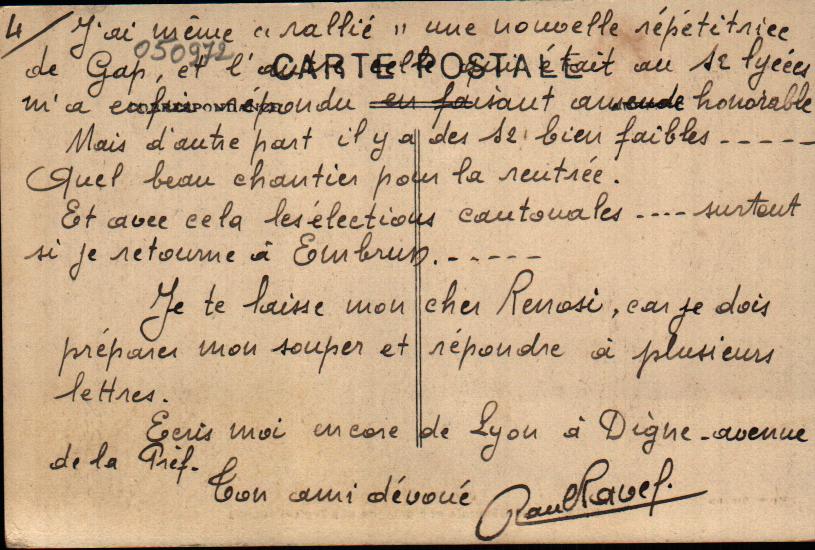 4/ J'ai même "rallié" une nouvelle répétitrice
050972
CARTE POSTALE
de Gap, et l'autre celle qui était au S2 lycées
CORRESPONDANCE
m'a enfin répondu en faisant amende honorable
Mais d'autre part il y a des S2 bien faibles -----
Quel beau chantier pour la rentrée.
Et avec cela les élections cantonales ---- surtout
si je retourne à Embrun. ------
Je te laisse mon cher Renosi, car je dois
préparer mon souper et répondre à plusieurs
lettres.
Ecris moi encore de Lyon à Digne - avenue
de la Préf.
Ton ami dévoué Paul Ravel.